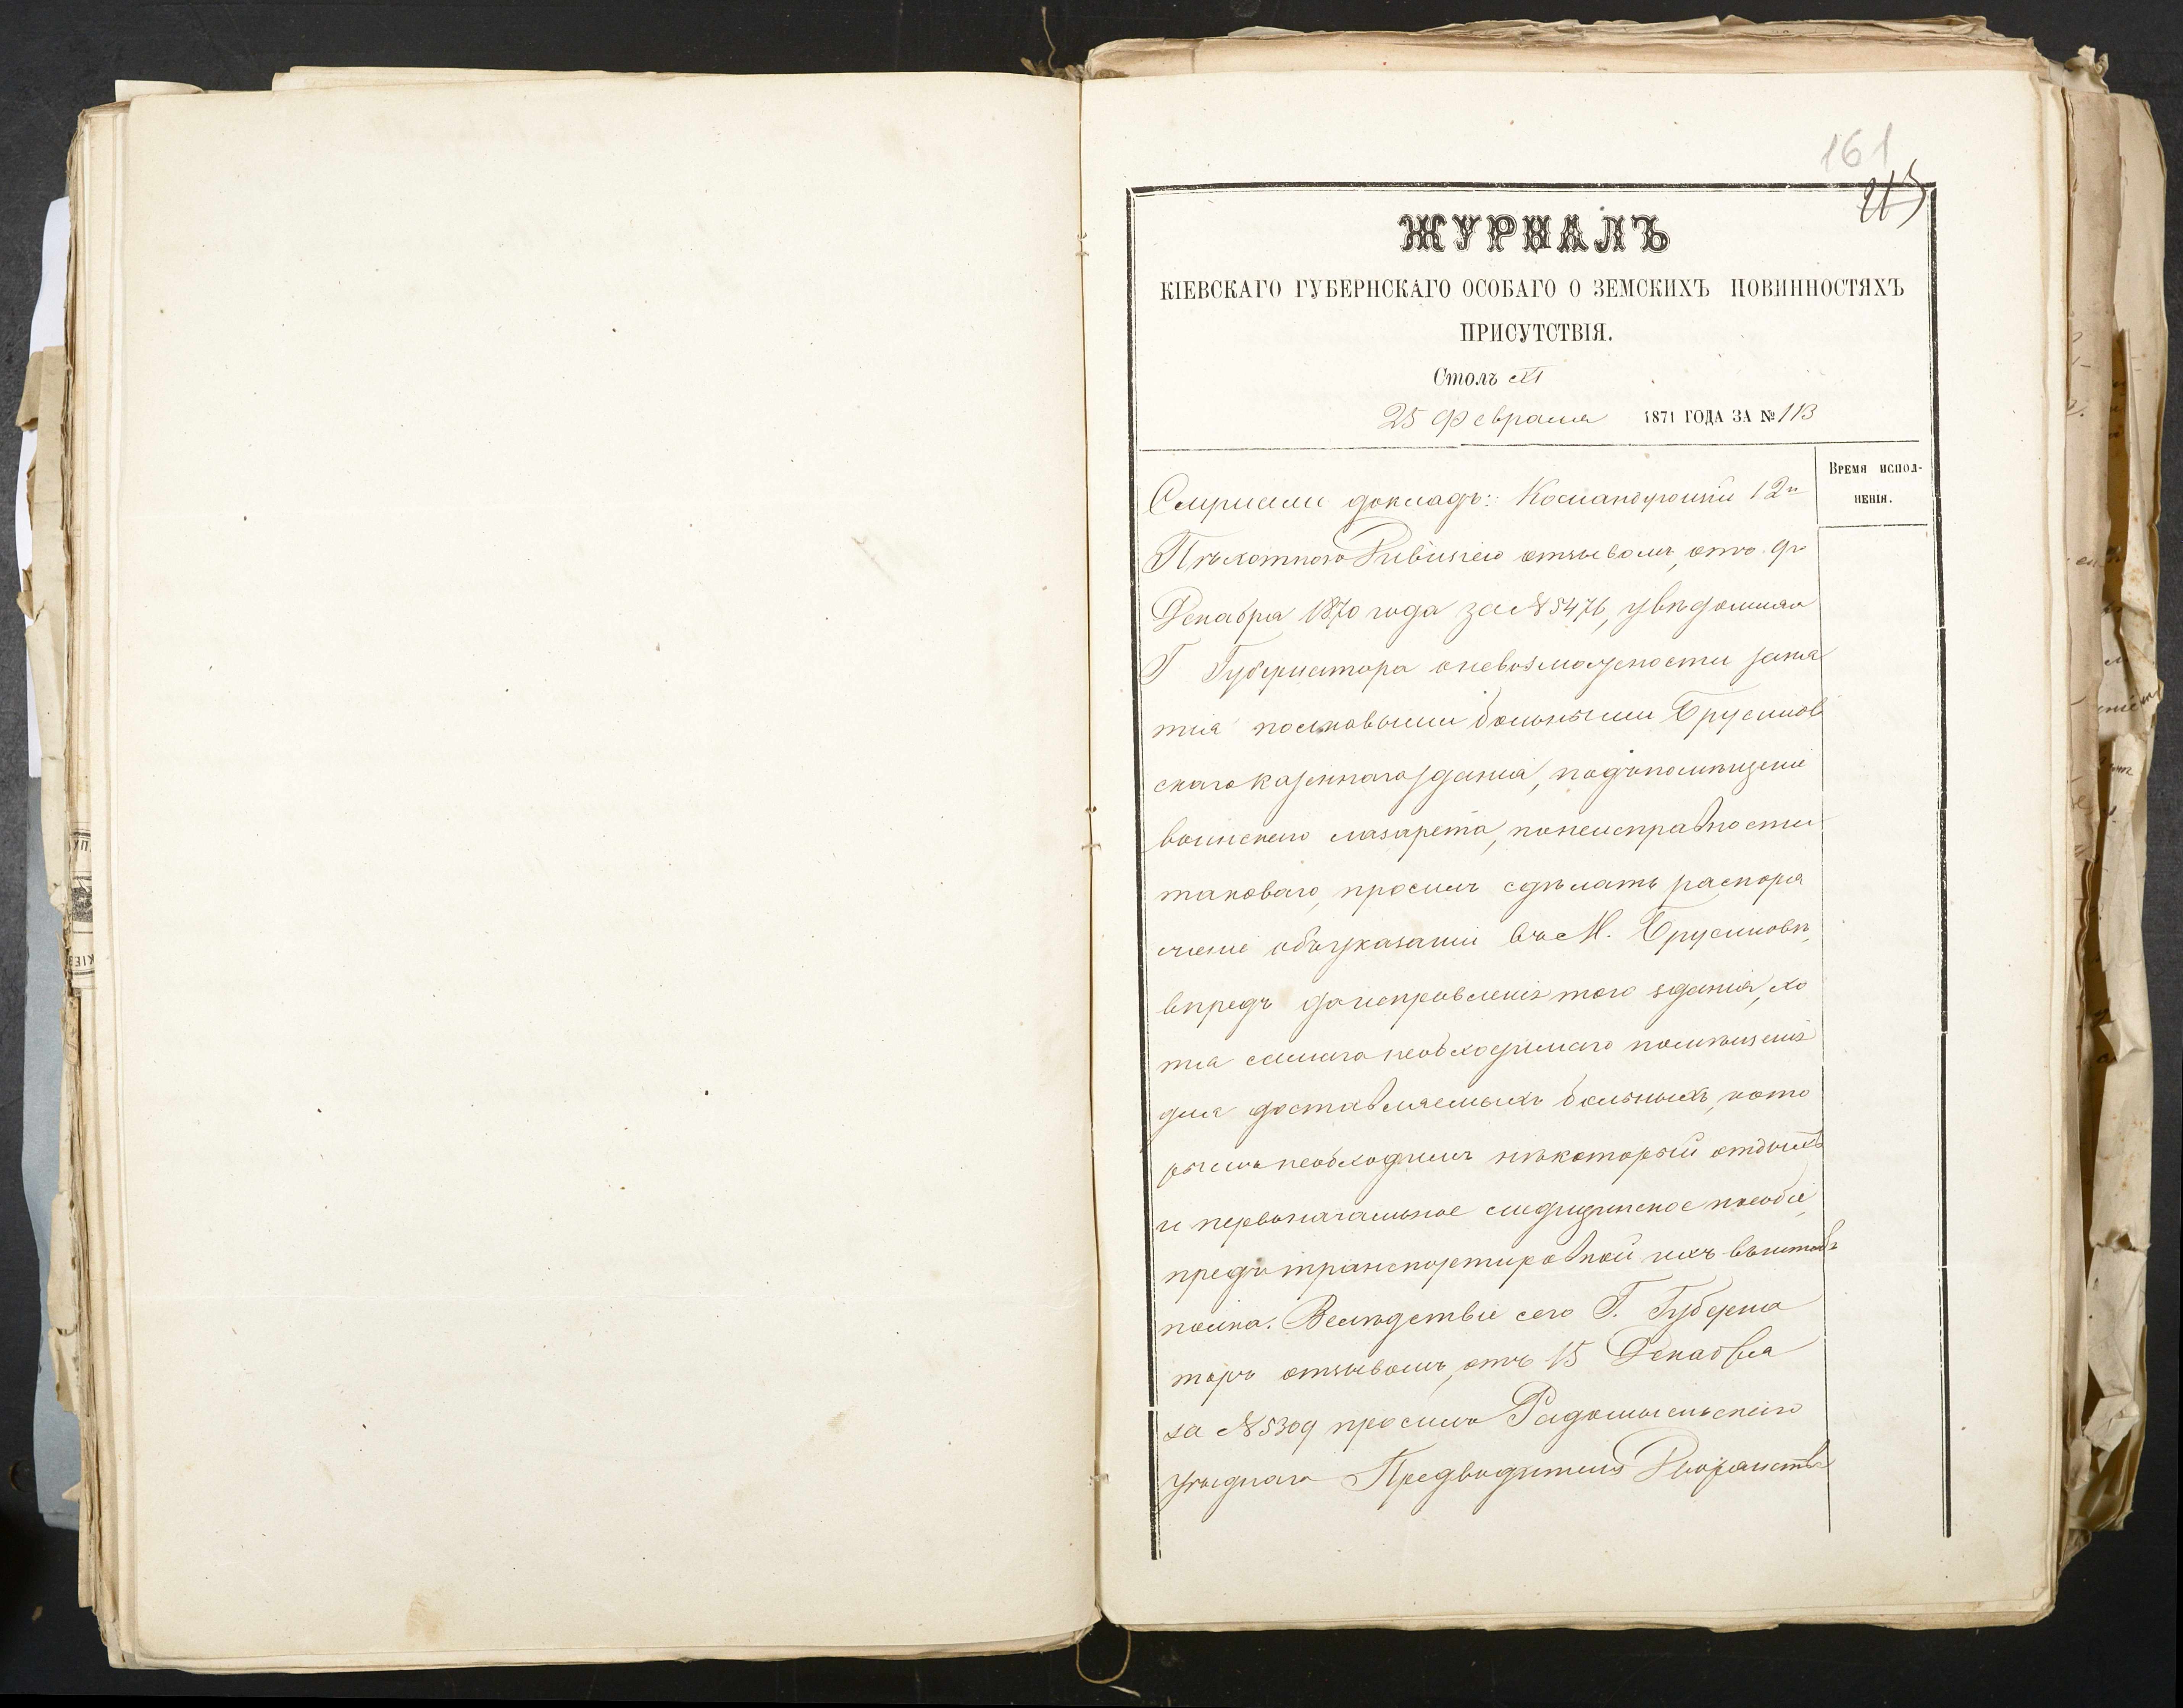 161
215
ЖУРНАЛЪ
КІЕВСКАГО ГУБЕРНСКАГО ОСОБАГО О ЗЕМСКИХЪ ПОВИННОСТЯХЪ
ПРИСУТСТВІЯ.
Столъ
25 Февраля 1871 ГОДА ЗА № 113
ВРЕМЯ ИСПОЛ-
НЕНІЯ.
Слушали докладъ: Командующій 12й
Пѣхотною Дивизіею отзывомъ, отъ 9го
Декабря 1870 года за №5476, увѣдомляя
Г Губернатора оневозможности заня
тія полковыми больными Брусилов
скаго казеннаго зданія, подъ помѣщеніе
воинскаго лазарета, понеисправности
таковаго, просилъ сдѣлать распоря
женіе объ указаніи въ М. Брусиловѣ,
впредь до исправленія того зданія, хо
тя самаго необходимаго помѣщенія
для доставляемыхъ больныхъ, кото
рымъ необходимъ нѣкоторый отдыхъ
и первоначальное медицинское пособіе,
предъ транспортировкой ихъ въ штабъ
полка. Вслѣдствіе сего Г. Губерна
торъ отзывомъ, отъ 15 Декабря
за №5309 просилъ Радомысльскаго
Уѣзднаго Предводителя Дворянства